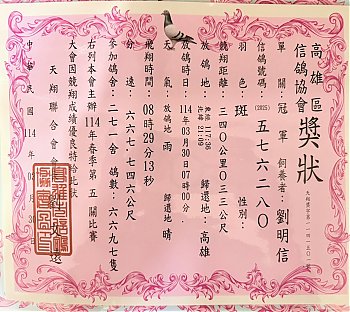 高雄區
信鴿協會
獎狀
單關冠軍 飼養者:劉明信
信鴿號碼:(2025)五七六二八〇
羽色:斑 性別:
競翔距離:三四〇公里〇三三公尺
放鴿地:東經117:36 北緯21:09 歸還地:高雄
放鴿時間:114年03月30日07時00分
天氣:放鴿地 雨 歸還地 晴
飛翔時間:08時29分13秒
分速:六六七.七四六公尺
參加鴿舍:二七一舍 鴿數:六六九七隻
右列本會主辦114年春季第五關比賽
大會因競翔成績優良特給此狀
天翔聯合會會
中華民國114年03月30日